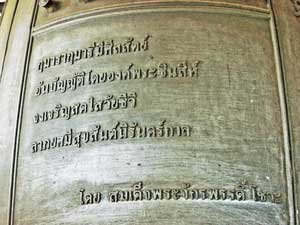 กุมารากุมารีมีศีลสัตย์
อันบัญญัติโดยองค์พระชินสีห์
จงเจริญสดใสวัยชีวี
ลาภยศมีสุขสันต์นิรันดร์กาล
โดย สมเด็จพระจักรพรรดิ์